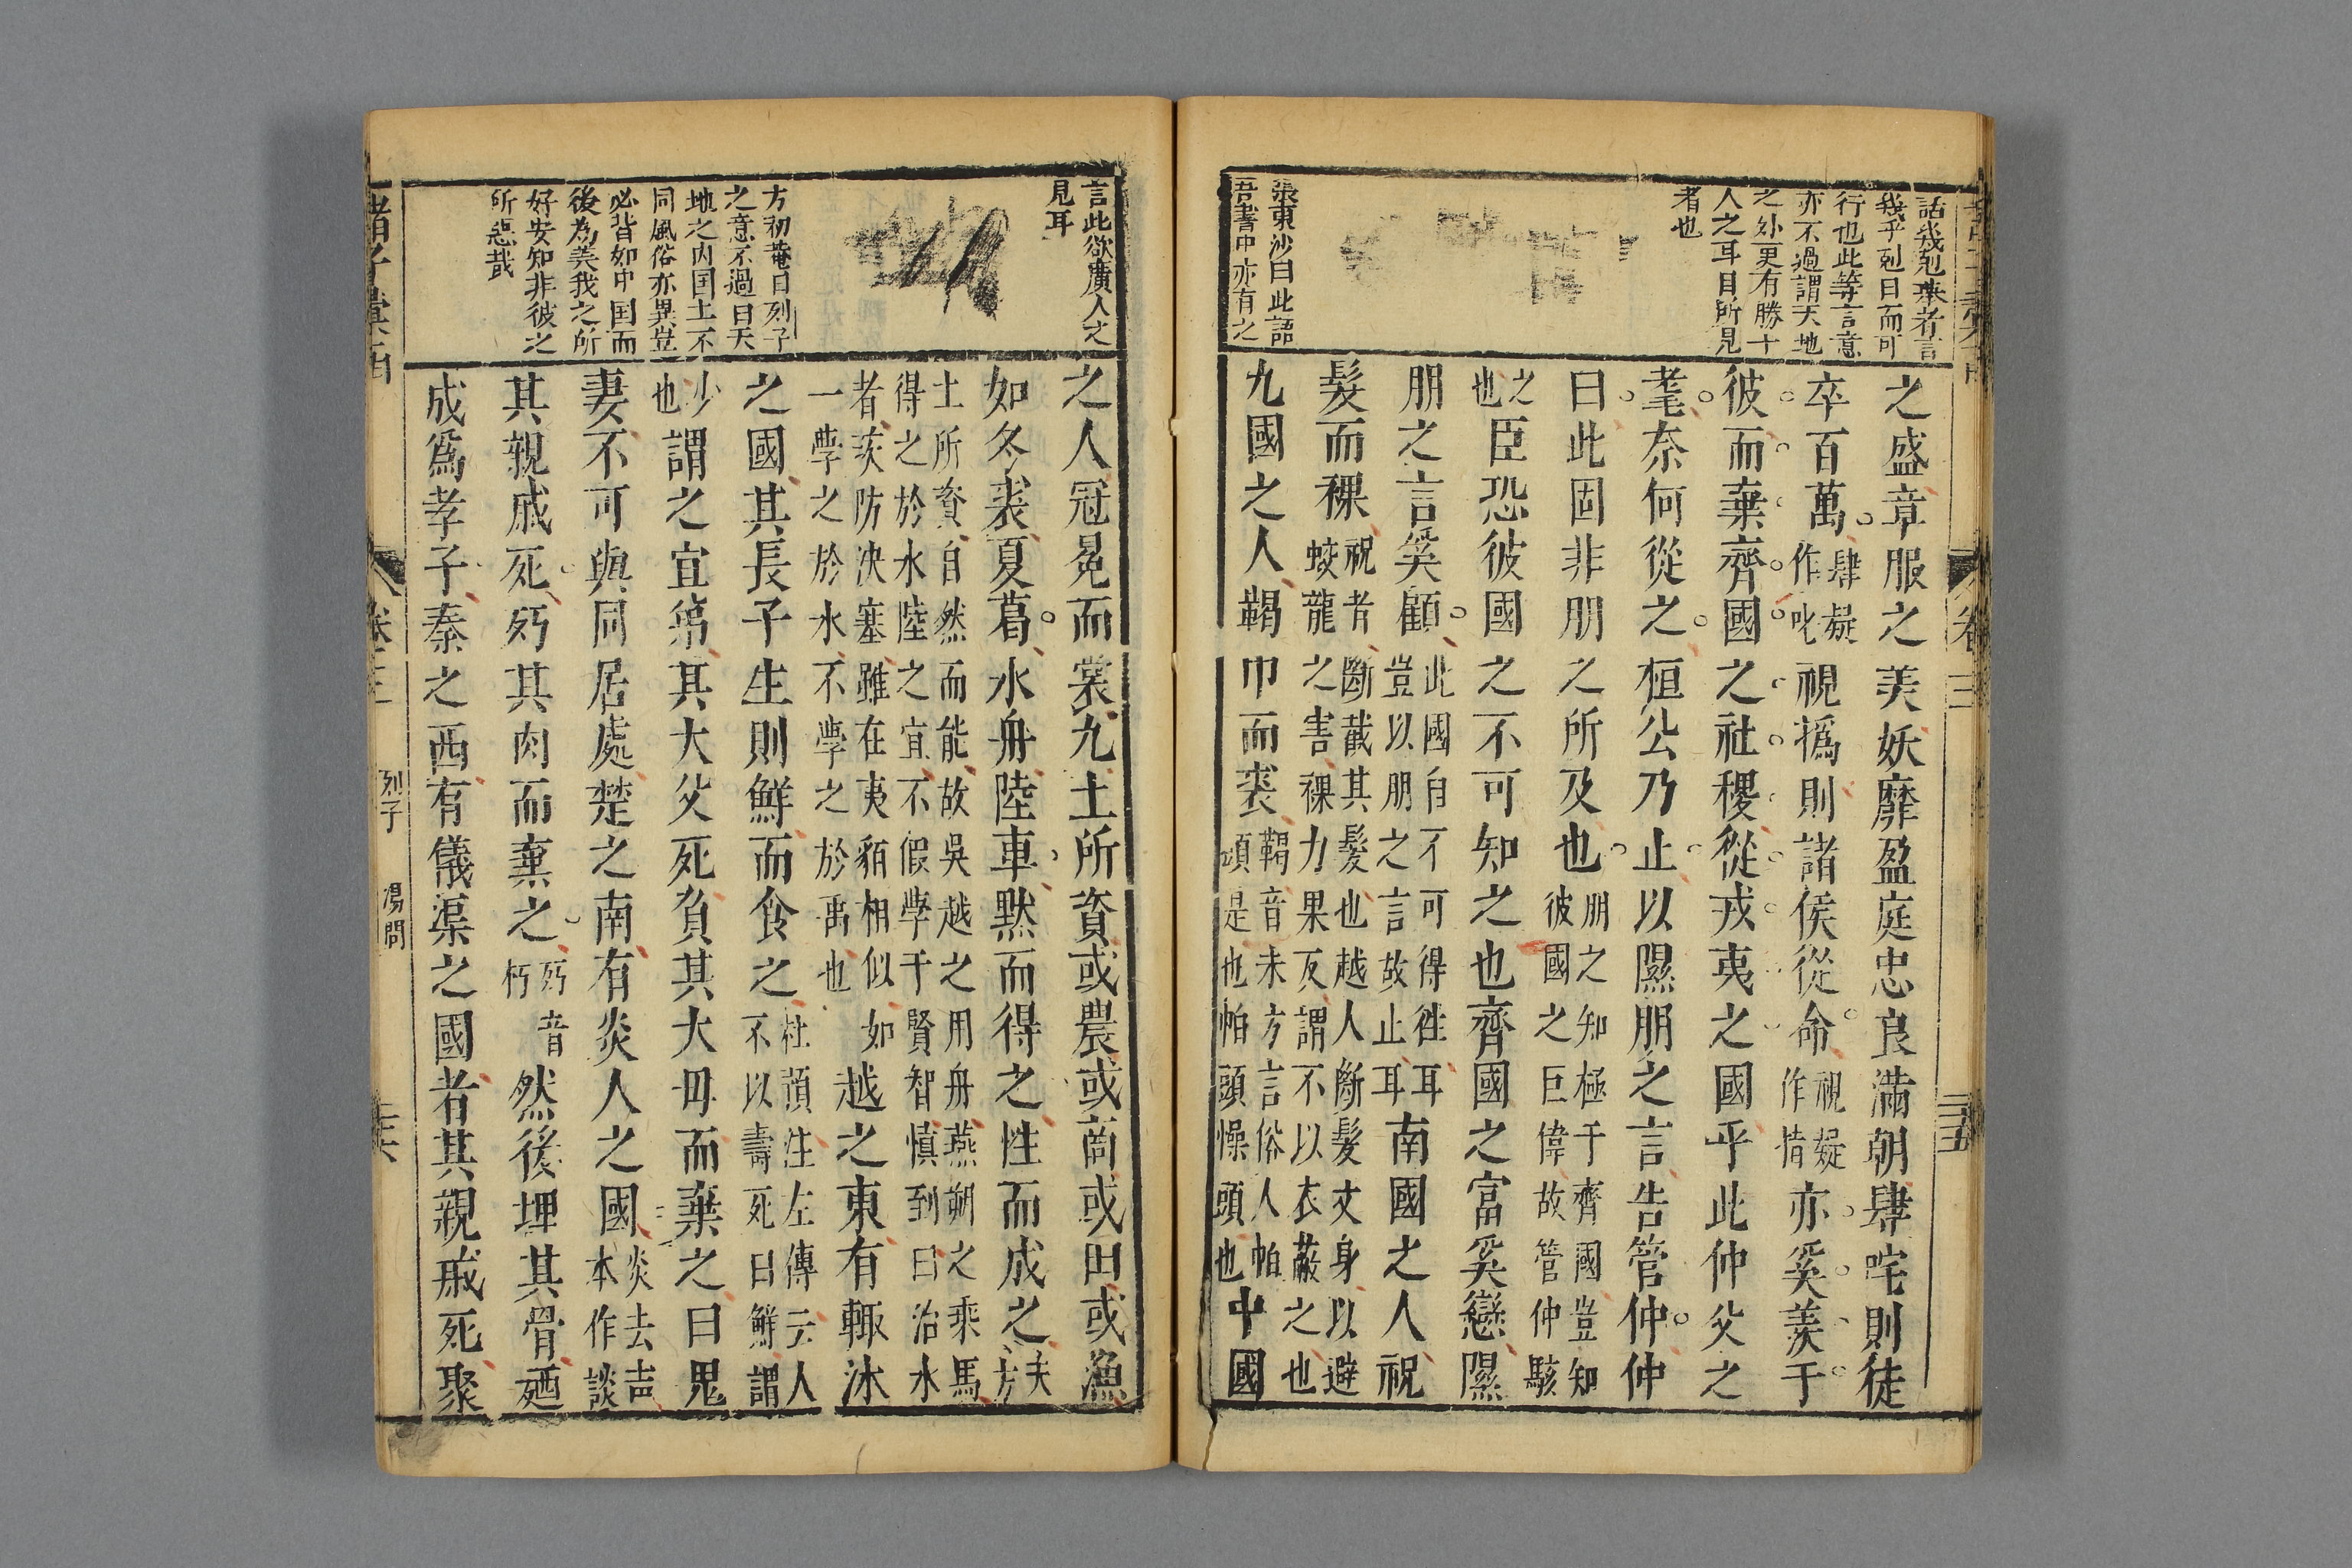 話幾尅来者言
幾乎尅日而可
行也此等言意
亦不過謂天地
之外更有勝十
人之耳目所見
者也
張東沙曰此語
吾書中亦有之
之盛章服之美妖靡盈庭忠良滿朝肆咤則徒
卒百萬肆疑作叱視撝則諸侯從命視疑作指亦奚羨于
彼而棄齊國之社稷從戎夷之國乎此仲父之
耄奈何從之桓公乃止以隰朋之言告管仲仲
曰此固非朋之所及也朋之知極于齊國豈知彼國之巨偉故管仲駭
之也臣恐彼國之不可知之也齊國之富奚戀隰
朋之言奚顧此國自不可得徃耳豈以朋之言故止耳南國之人祝
髮而裸祝者斷截其髮也越人斷髮文身以避蛟龍之害裸力果反謂不以衣蔽之也
九國之人鞨巾而裘鞨音末方言俗人帕頭是也帕頭幧頭也中國
言此欲廣人之
見耳
方初菴曰列子
之意不過曰天
地之内国土不
同風俗亦異豈
必皆如中国而
後為美我之所
好安知非彼之
所惡哉
之人冠冕而裳九土所資或農或啇或田或漁
如冬裘夏葛水舟陸車默而得之性而成之夫方
土所資自然而能故吳越之用舟燕朔之乘馬得之於水陸之宜不假學于賢智慎到曰治水
者茨防決塞雖在夷貊相似如一學之於水不學之於禹也越之東有輒沐
之國其長子生則鮮而食之杜預注左傳云人不以壽死曰鮮謂
少也謂之宜弟其大父死負其大毋而棄之曰鬼
妻不可與同居處楚之南有炎人之國炎去声本作談
其親戚死㱙其肉而棄之㱙音朽然後埋其骨廼
成爲孝子秦之西有儀渠之國者其親戚死聚
卷三
列子
湯問